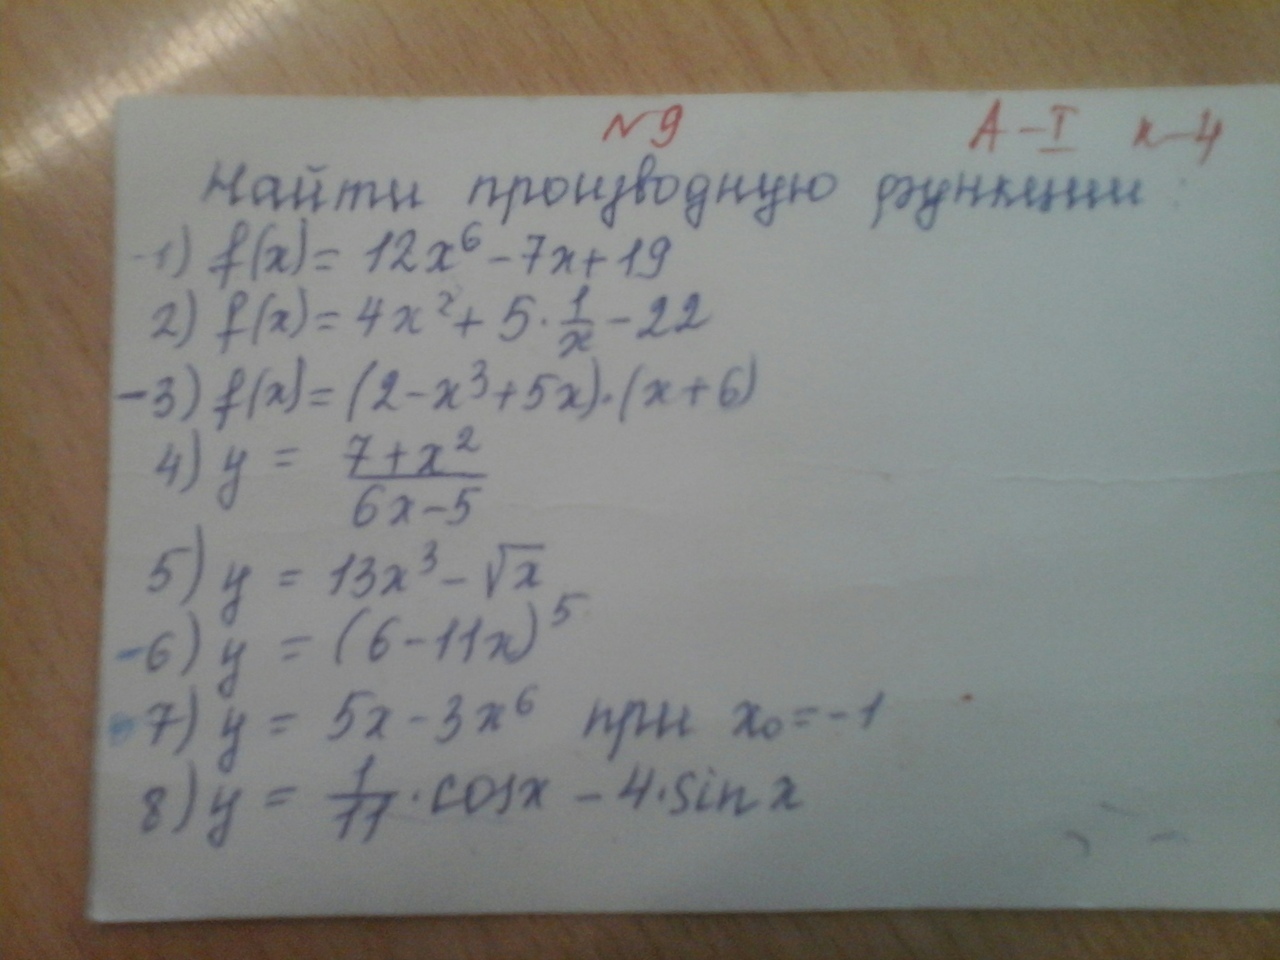 №9 А-I к-4
Найти производную функции:
1) f(x)= 12x⁶-7x+19
2) f(x)= 4x²+ 5·1/x-22
3) f(x)= (2-x³+5x)·(x+6)
4) y = (7+x²)/(6x-5)
5) y = 13x³-√x
6) y = (6-11x)⁵
7) y = 5x-3x⁶ при x₀=-1
8) y = 1/11·cosx-4·sinx